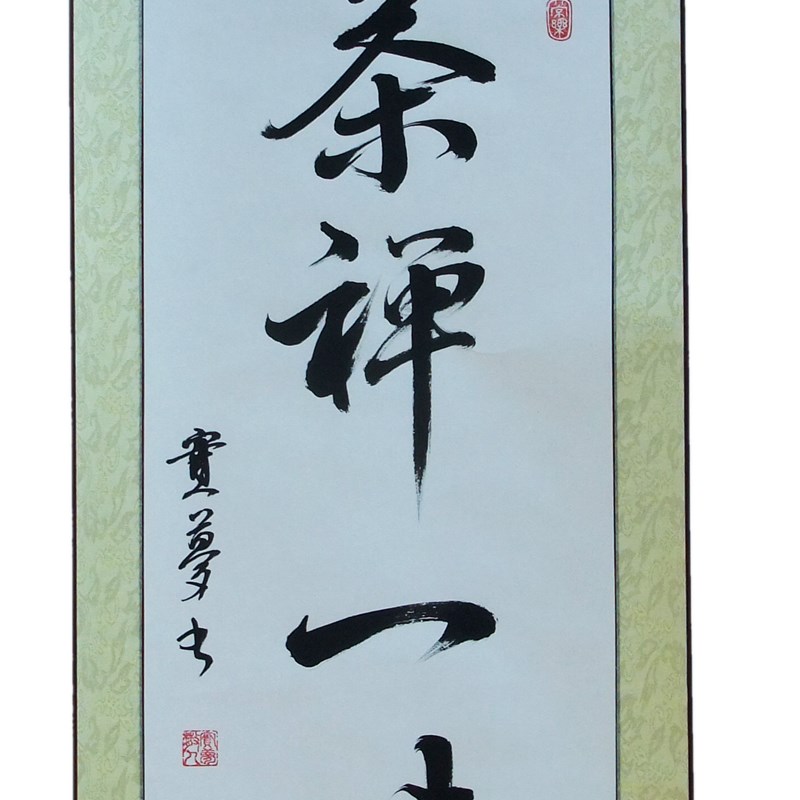 茶禅一
寳夢书